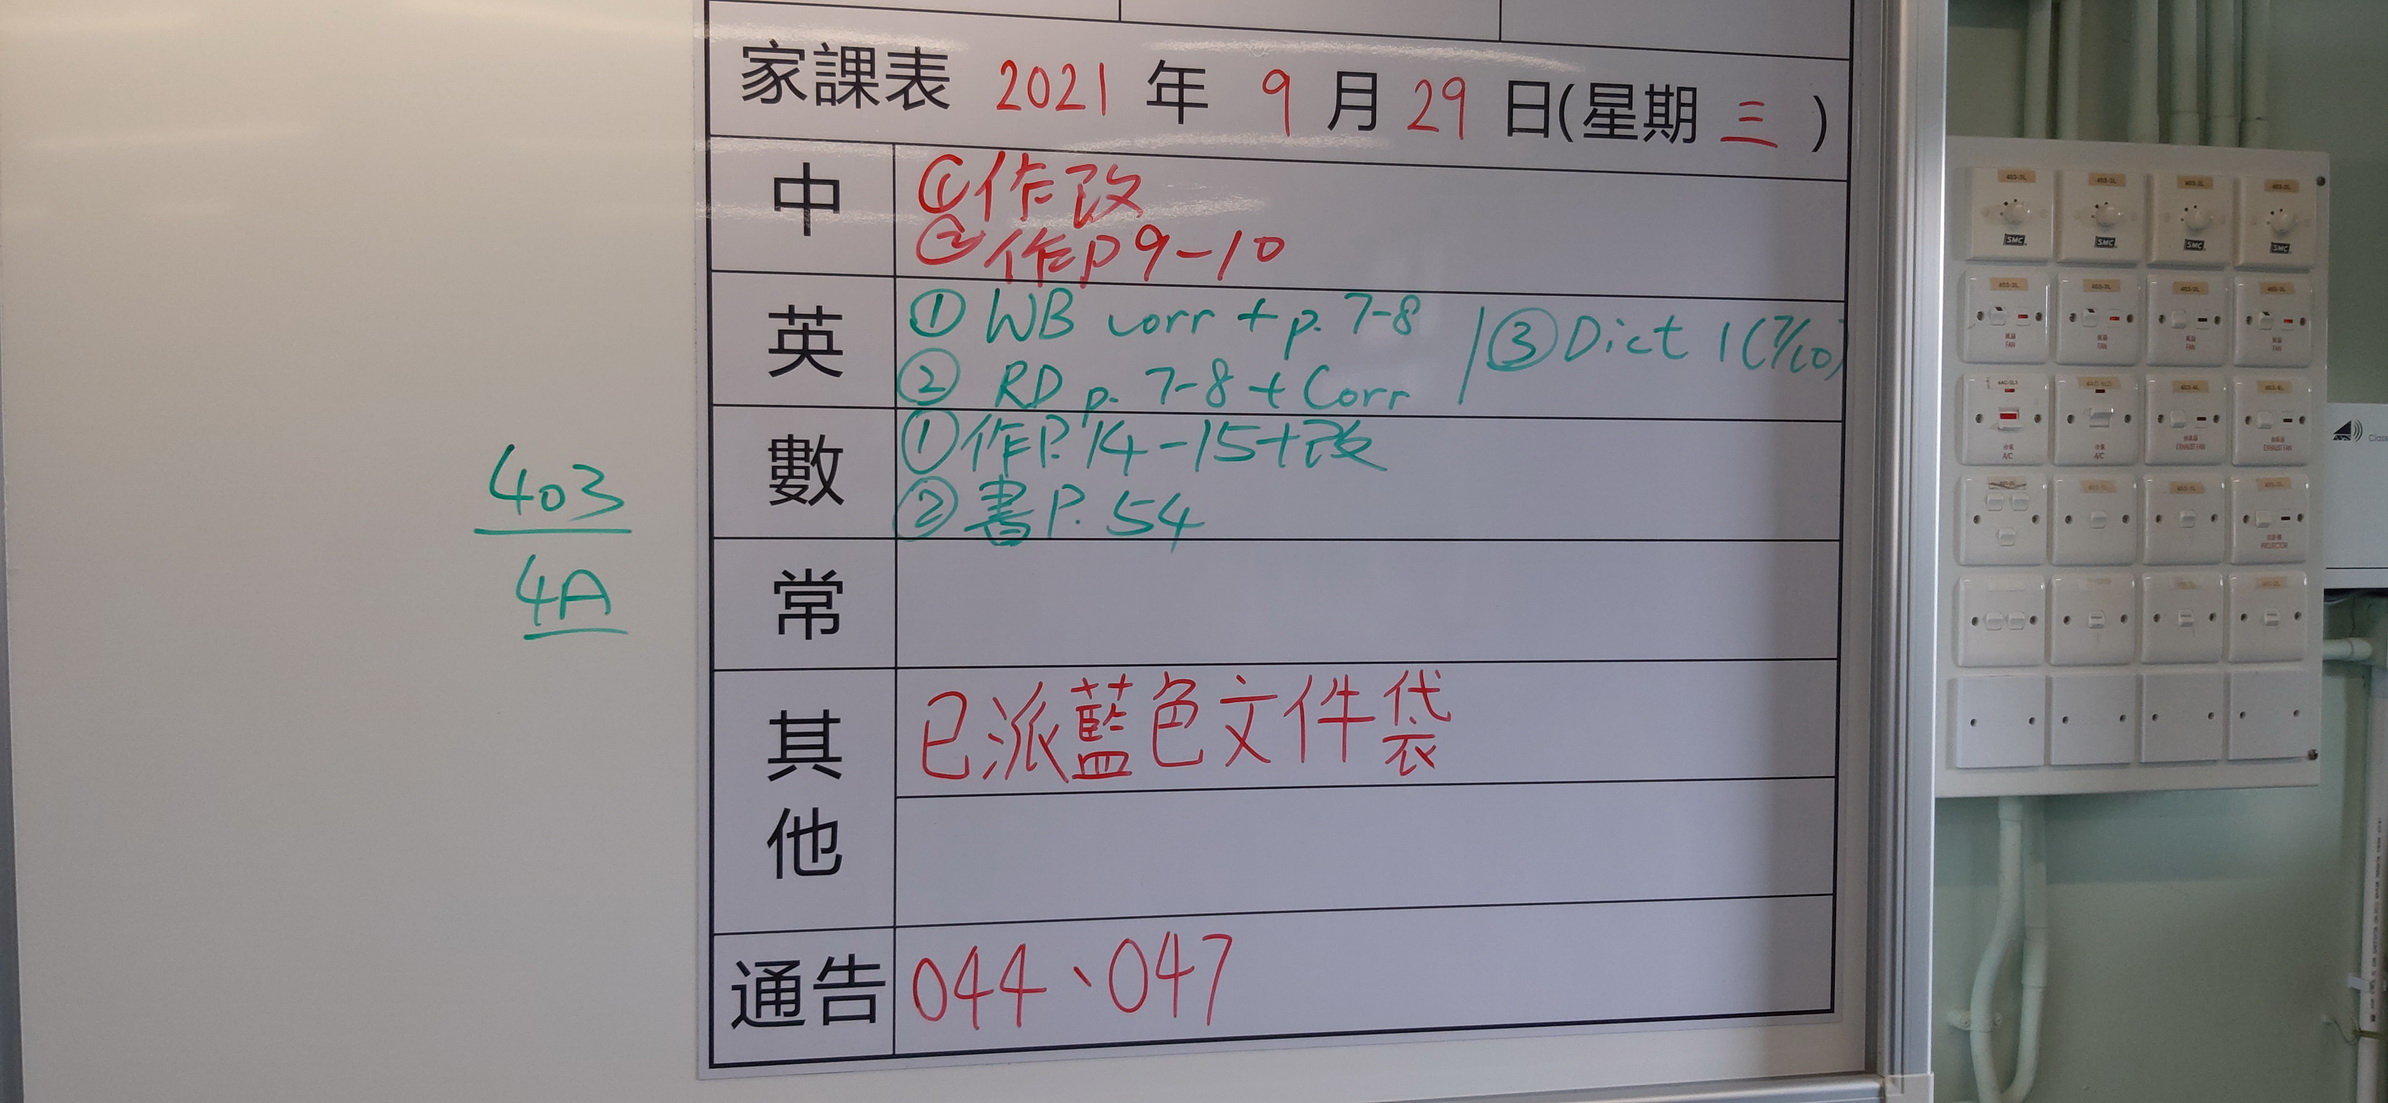 家課表 2021 年 9 月 29 日(星期 三 )
中
①作改
②作P9-10
英
① WB corr + p. 7-8
② RD p. 7-8 + Corr
③ Dict 1 (7/10)
數
①作P.14-15+改
②書P.54
常
其他
已派藍色文件袋
通告
044、047
403
4A
SMC
SMC
SMC
SMC
FAN
FAN
FAN
FAN
A/C
A/C
EXHAUST FAN
EXHAUST FAN
PROJECTOR